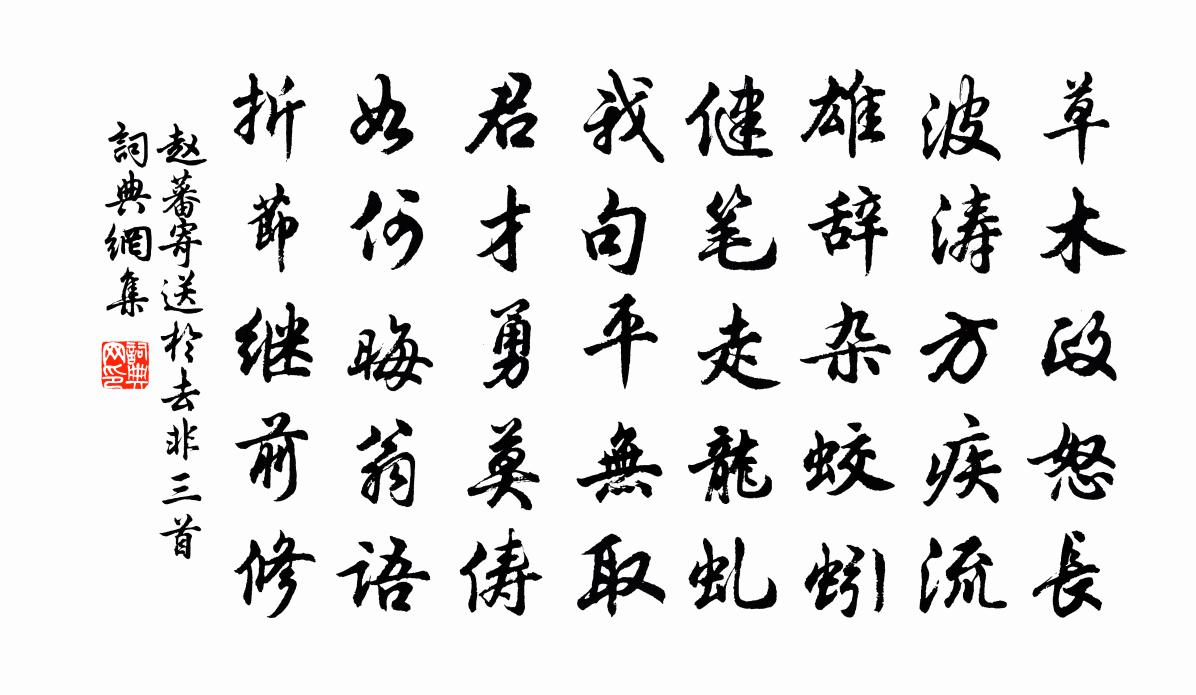 草木政怒長
波涛方疾流
雄辞杂蛟蚓
健笔走龍虬
我句平無取
君才勇莫俦
如何晦翁语
折節继前修
赵蕃寄送於去非三首
詞典網集
詞典网印